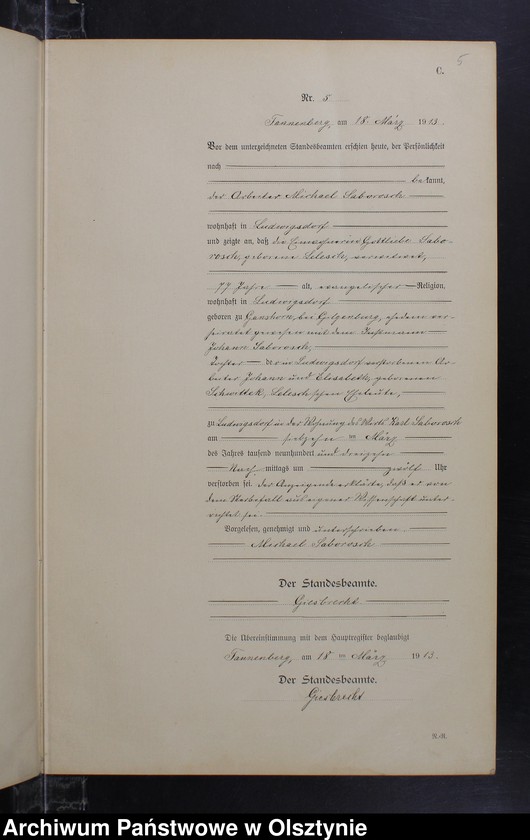 5
C.
Nr. 5
Tannenberg, am 18. März 1913.
Vor dem unterzeichneten Standesbeamten erschien heute, der Persönlichkeit
nach
bekannt,
der Arbeiter Michael Saborosch
wohnhaft in Ludwigsdorf
und zeigte an, daß die Gottliebe Sabo-
rosch, geborene Lelesch, verwitwet,
77 Jahre alt, evangelischer Religion,
wohnhaft in Ludwigsdorf
geboren zu Ganshorn, bei Gilgenburg, ehedem ver-
heiratet gewesen mit dem
Johann Saborosch,
Tochter der in Ludwigsdorf verstorbenen Ar-
beiter Johann und Elisabeth, geborenen
Schwittek, Lelesch'schen Eheleute,
zu Ludwigsdorf in der Wohnung des Wirts Karl Saborosch
am siebzehnten März
des Jahres tausend neunhundert und dreizehn
Nachmittags um zwölf Uhr
verstorben sei. Der Anzeigende erklärte, daß er von
dem Sterbefall aus eigener Wissenschaft unter-
richtet sei.
Vorgelesen, genehmigt und unterschrieben
Michael Saborosch
Der Standesbeamte.
Giesbrecht
Die Übereinstimmung mit dem Hauptregister beglaubigt
Tannenberg, am 18 ten März 1913.
Der Standesbeamte.
Giesbrecht
R.-R.
Archiwum Państwowe w Olsztynie